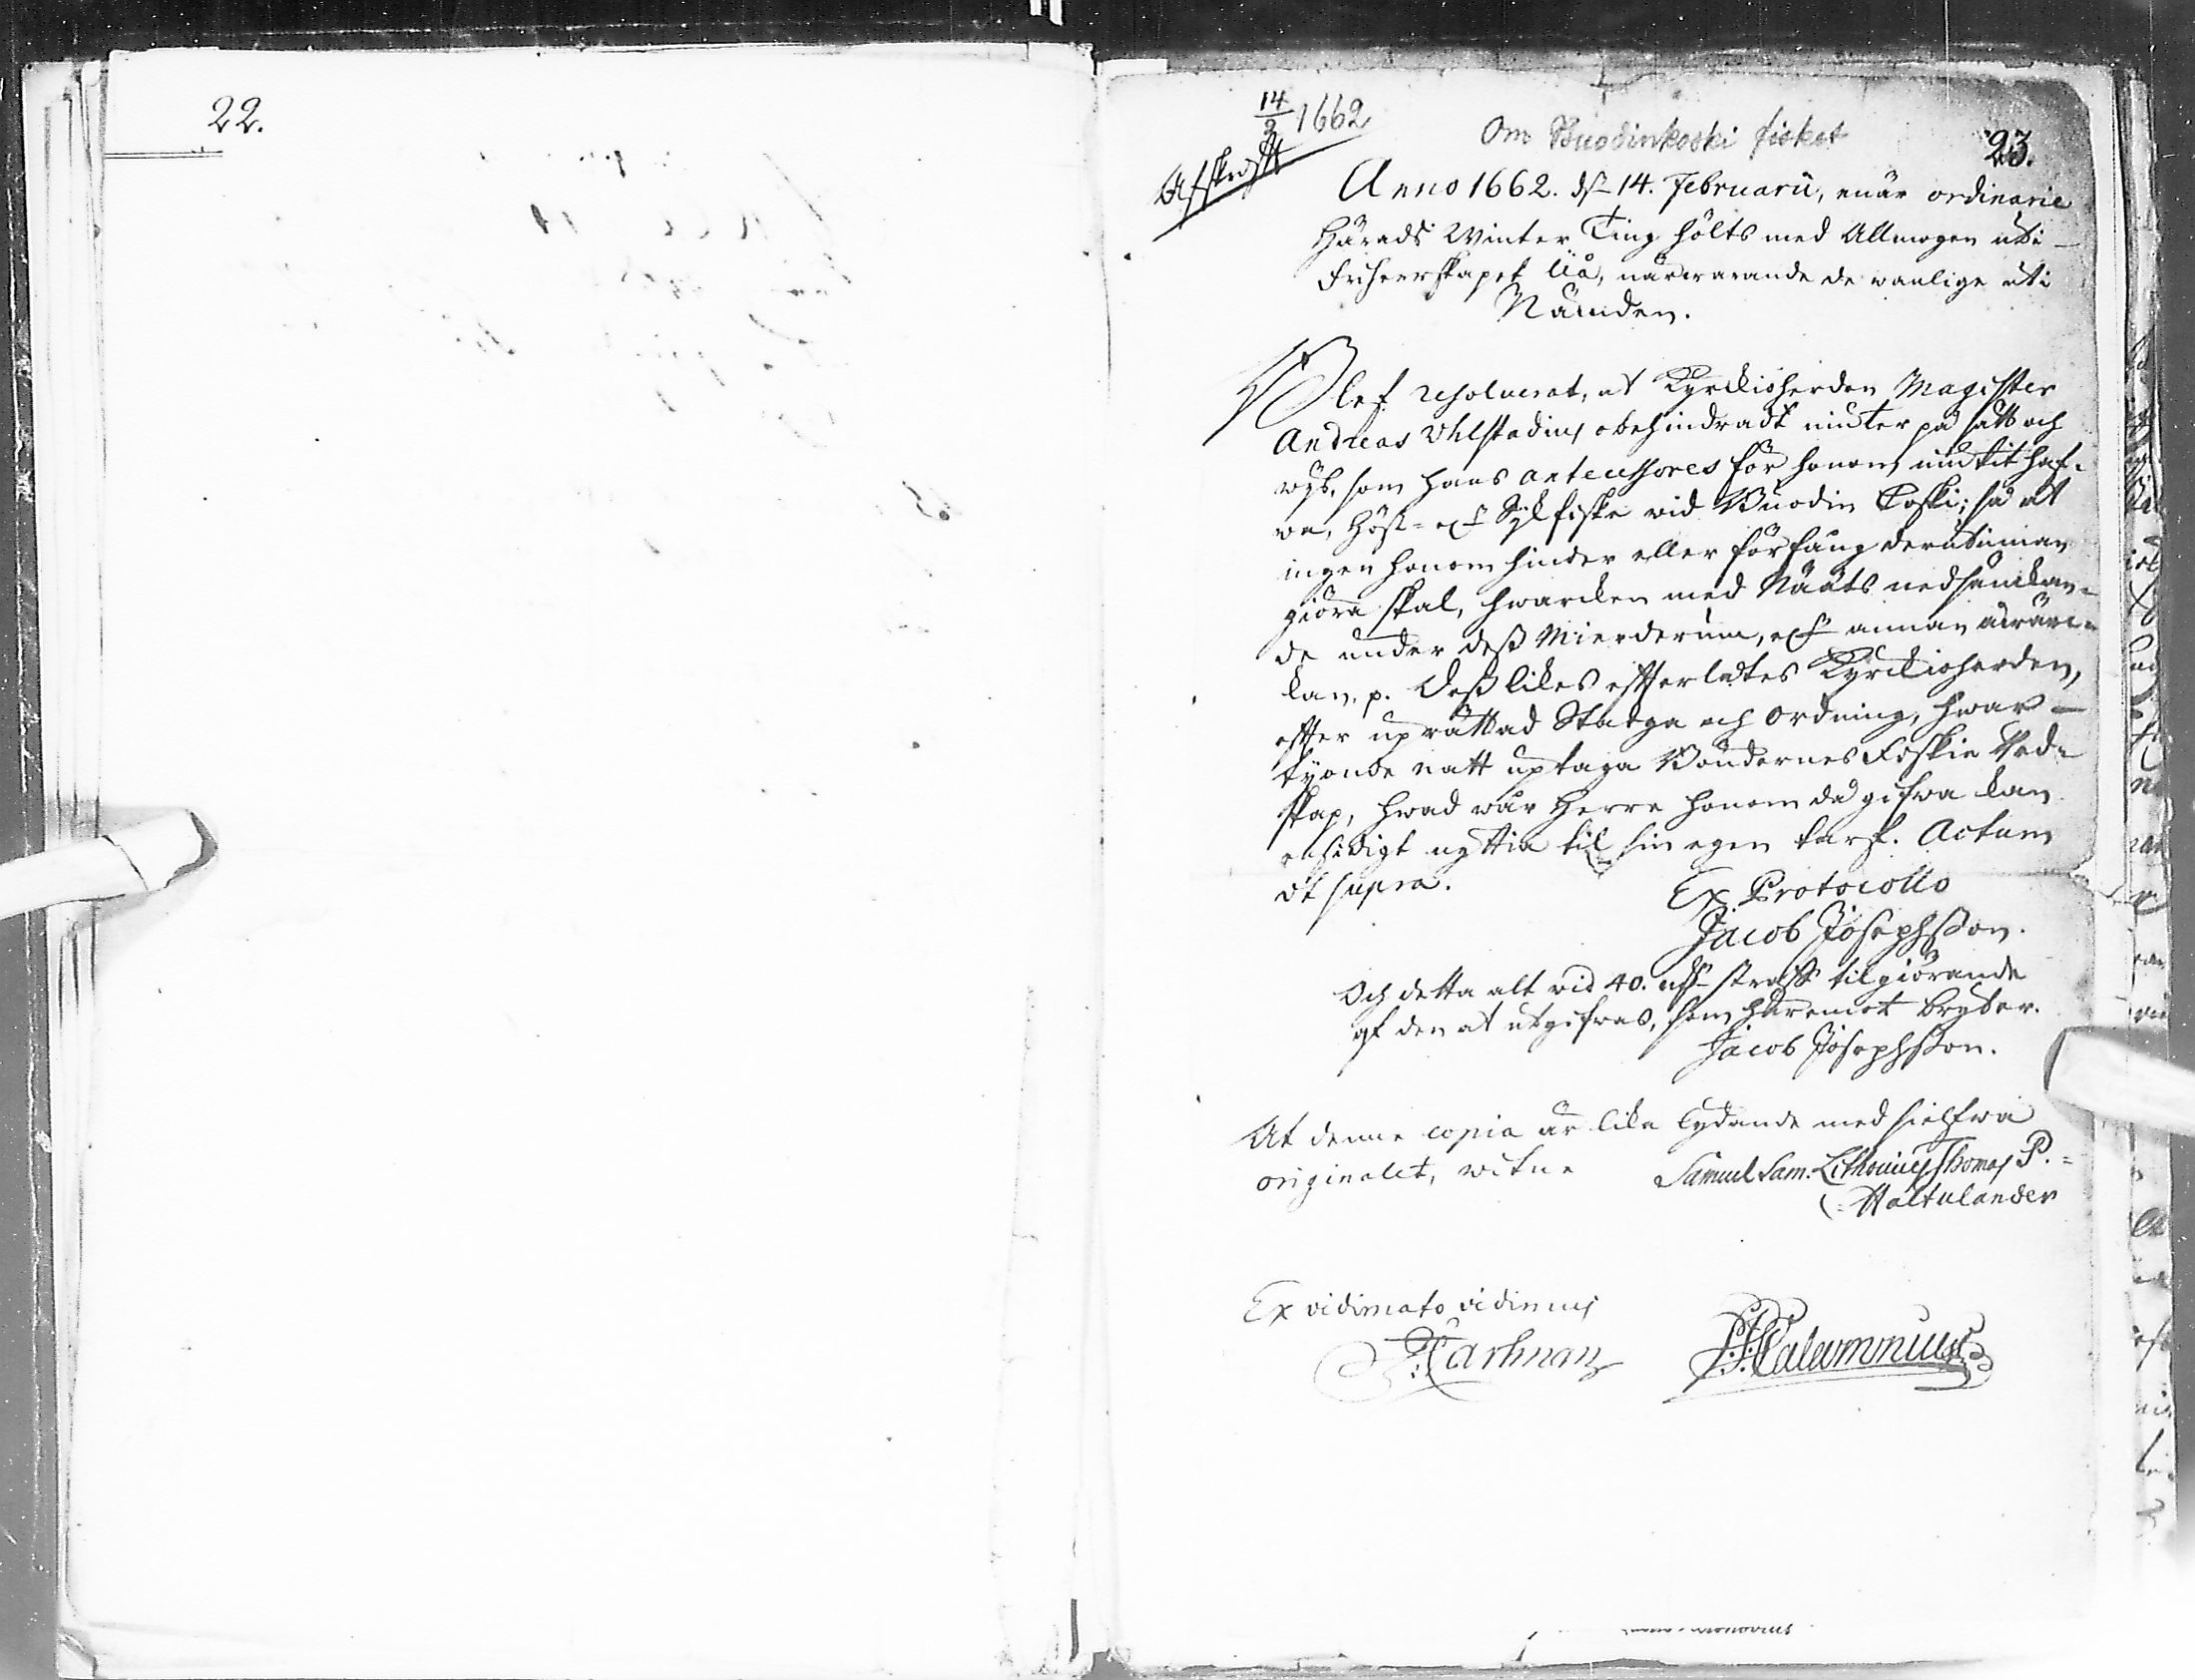 22.
14/2 1662
Om Buodinkoski fisket
23.
Afskrift
Anno 1662. d. 14. Februarii, enär ordinarie
Härads Winter Ting hölts med Allmogen uti
Friheerskapet Uå, närwarande de wanlige uti
Nämden.
Blef resolverat, at Kyrckioherden Magister
Andreas Uhlstadius obehindradt niuter på sätt och
wijs, som hans antecessores för honom niutit haf-
wa, Höst- och Sijkfiske wid Buodin Koski; så at
ingen honom hinder eller förfång derutinnan
giöra skal, hwarcken med Nääts nedsänckan-
de under dess Mierderum, och annan
kan, p. Desslikes effterlåtes Kyrckioherden,
effter uprättad Stadga och Ordning, hwar
tijonde natt uptaga Böndernes Fiskie Red-
skap, hwad wår Herre honom då gifwa kan
ensidigt nyttia til sin egen tarf. Actum
ut supra.
Ex Protocollo
Jacob Josephsson.
Och detta alt wid 40. straff tilgiörande
af den at utgifwas, som häremot bryter.
Jacob Josephsson.
At denne copia är lika lydande med sielfwa
originalet, witne Samuel Sam. Lithovius Thomas P.=
(=Haltulander
Ex vidimato vidimus
Carlman Calamnius